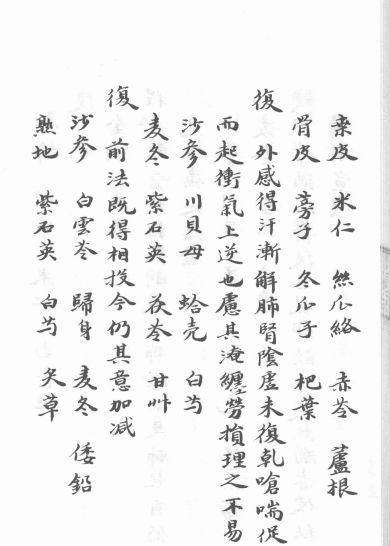 桑皮 米仁 絲瓜絡 赤苓 蘆根
骨皮 蒡子 冬瓜子 杷葉
復 外感得汗漸解肺腎陰虛未復乾嗆喘促
而起衝氣上逆也慮其淹纏勞損理之不易
沙參 川貝母 蛤壳 白芍
麦冬 紫石英 茯苓 甘艸
復 前法既得相投今仍其意加减
沙參 白雲苓 歸身 麦冬 倭鉛
熟地 紫石英 白芍 炙草